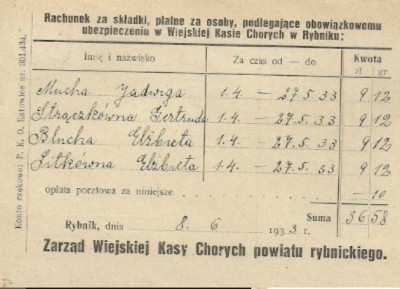 Rachunek za składki, płatne za osoby, podlegające obowiązkowemu
ubezpieczeniu w Wiejskiej Kasie Chorych w Rybniku:
Imię i nazwisko Za czas od — do Kwota
zł gr
Mucha Jadwiga 1.4. — 27.5.33 9 12
Strączkówna Gertruda 1.4. — 27.5.33 9 12
Blucha Elżbieta 1.4. — 27.5.33 9 12
Sitkówna Elżbieta 1.4. — 27.5.33 9 12
opłata pocztowa za niniejsze — 10
Suma 36 58
Rybnik, dnia 8. 6 1933 r.
Zarząd Wiejskiej Kasy Chorych powiatu rybnickiego.
Konto czekowe: P. K. O. Katowice nr. 301.434.